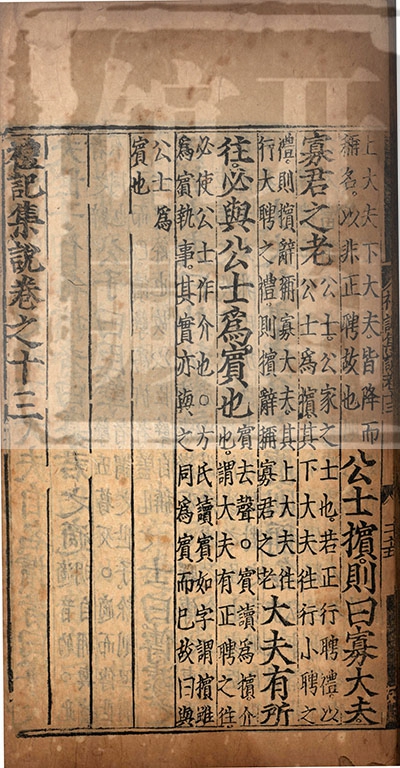 上大夫下大夫皆降而
稱名以非正聘故也
公士擯則曰寡大夫
寡君之老
公士公家之士也若正行聘禮以
公士為擯其下大夫往行小聘之
禮則擯辭稱寡大夫其上大夫往
行大聘之禮則擯辭稱寡君之老
大夫有所
往必與公士爲賓也
賓去聲○賓讀為擯介
也謂大夫有正聘之往
必使公士作介也○方氏讀賓如字謂擯雖
為賓執事其實亦與之同為賓而已故曰與
公士為
賓也
禮記集說卷之十三